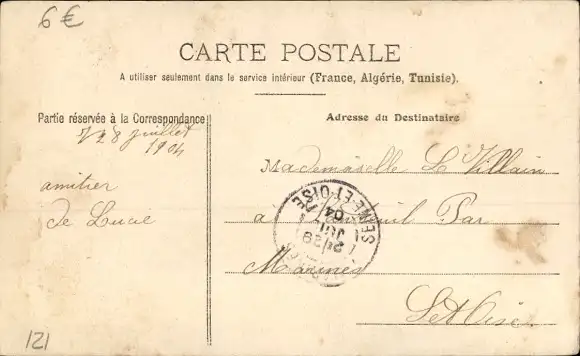 6 €
CARTE POSTALE
A utiliser seulement dans le service intérieur (France, Algérie, Tunisie).
Partie réservée à la Correspondance
Adresse du Destinataire
28 juillet
1904
amitier
de Lucie
Mademoiselle L Villain
a Par
Marines
S et Oise
SEINE-ET-OISE
JUIL
04
121